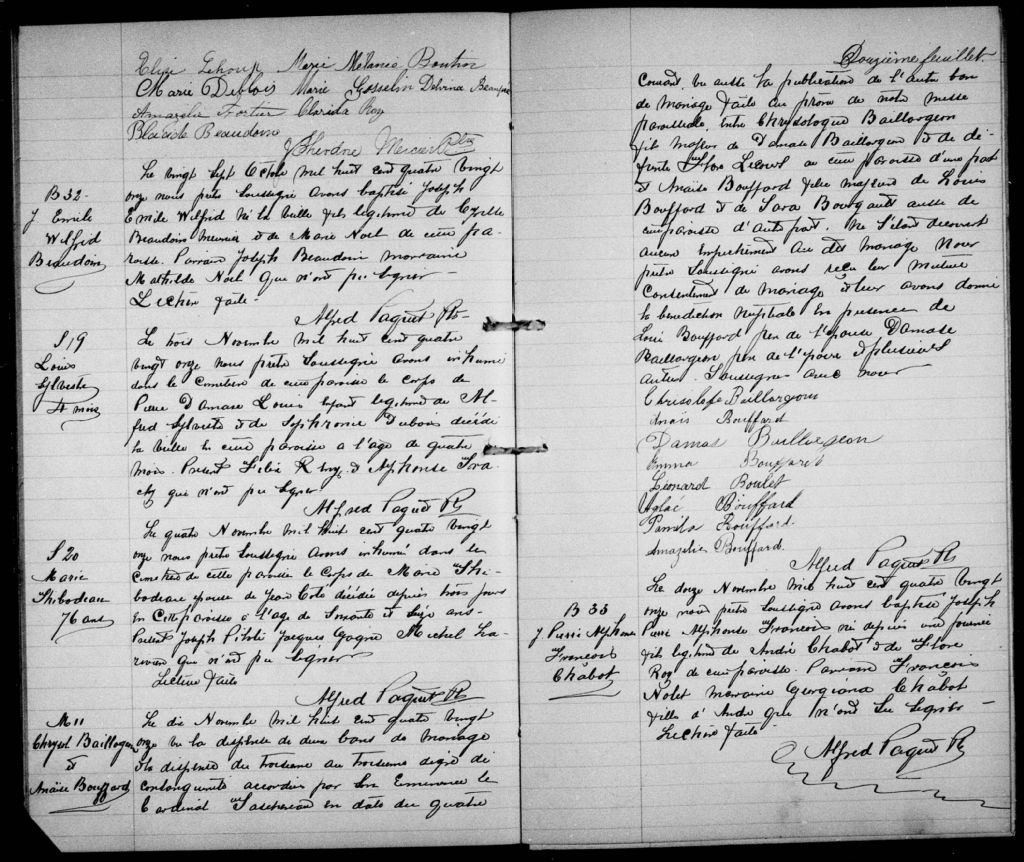 Marie Mélanie Boutin
Marie Dubois Marie Gosselin Delvina
Amarelia Fortier Clarida Roy
Beaudoin
Mercier Ptr
B 32
J Emile
Wilfrid
Beaudoin
Le vingt sept Octobre mil huit cent quatre vingt
onze nous prêtre soussigné avons baptisé Joseph
Emile Wilfrid né la veille fils légitime de Cyrille
Beaudoin meunier et de Marie Noel de cette pa-
roisse. Parrain Joseph Beaudoin marraine
Mathilde Noel qui n'ont pu signer
Lecture faite
Alfred Paquet Ptr
S 19
Louis
Sylvestre
4 mois
Le trois Novembre mil huit cent quatre
vingt onze nous prêtre soussigné avons inhumé
dans le cimetière de cette paroisse le corps de
Pierre Damase Louis enfant légitime de Al-
fred Sylvestre et de Sophronie Dubois décédé
la veille en cette paroisse a l'age de quatre
mois. Présent Roy et Alphonse
qui n'ont pu signer
Alfred Paquet Ptr
S 20
Marie
Thibodeau
76 ans
Le quatre Novembre mil huit cent quatre vingt
onze nous prêtre soussigné avons inhumé dans le
cimetière de cette paroisse le corps de Marie Thi-
bodeau épouse de Jean Coté décédée depuis trois jours
en cette paroisse a l'age de soixante et seize ans
Présent Joseph Jacques Gagné Michel La-
rivière qui n'ont pu signer
Lecture faite
Alfred Paquet Ptr
M 11
Chryst Baillargeon
et
Anaïse Bouffard
Le dix Novembre mil huit cent quatre vingt
onze vu la dispense de deux bans de mariage
et la dispense du troisieme au troisieme degré de
consanguinité accordées par Son Eminence le
Cardinal Taschereau en date du quatre
Douzième feuillet
courant, vu aussi la publication de l'autre ban
de mariage faite au prône de notre messe
paroissiale, entre Chrysologue Baillargeon
fils majeur de Damase Baillargeon et de dé-
funte Flore Leclerc de cette paroisse d'une part
et Anaise Bouffard fille majeure de Louis
Bouffard et de Sara Bourgault aussi de
cette paroisse d'autre part. Ne s'étant découvert
aucun empêchement au dit mariage Nous
prêtre soussigné avons reçu leur mutuel
consentement de mariage et leur avons donné
la bénédiction nuptiale en présence de
Louis Bouffard père de l'épouse Damase
Baillargeon père de l'époux et plusieurs
autres soussignés avec nous
Baillargeon
Anaïs Bouffard
Damas Baillargeon
Emma Bouffard
Léonard Boulet
Aglaé Bouffard
Paméla Bouffard
Amazélie Bouffard
Alfred Paquet Ptr
B 33
J Pierre Alphonse
Francois
Chabot
Le douze Novembre mil huit cent quatre vingt
onze nous prêtre soussigné avons baptisé Joseph
Pierre Alphonse Francois né depuis une journée
fils légitime de André Chabot et de Flore
Roy de cette paroisse. Parrain François
Nolet marraine Georgiana Chabot
fille d'André qui n'ont su signer
Lecture faite
Alfred Paquet Ptr